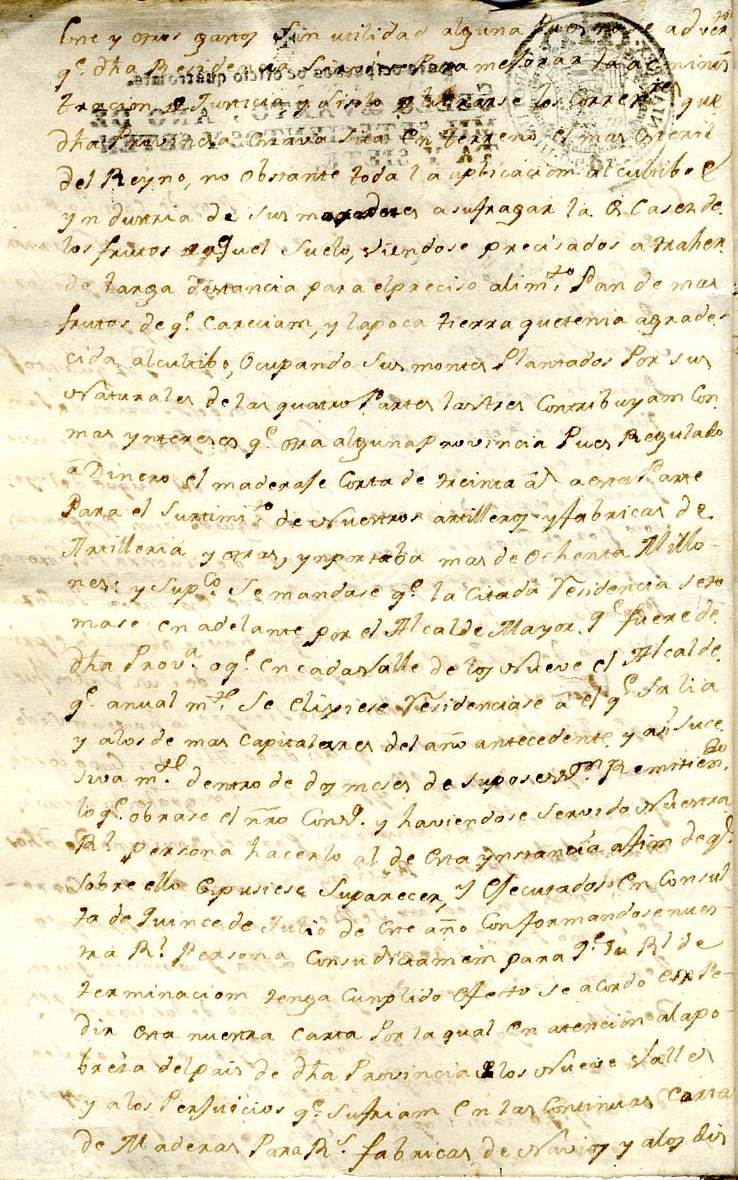 este y otros gastos sin utilidad alguna Pues no se adver
q.e dha Residencia Sirviese Para mejorar la adminis
tracion de Justicia y Si solo
dha Provincia estava sita en terreno el mas esteril
del Reyno, no obstante toda la aplicacion al cultibo e
yndustria de sus moradores a sufragar la escasez de
los frutos aquel Suelo, viendose precisados a traher
de larga distancia para el preciso alim.to Pan de mas
frutos de q.e Careciam, y la poca tierra que tenia agrade
cida al cultibo, Ocupando Sus montes Plantados Por sus
Naturales de las quatro Partes las tres Contribuyam Con
mas yntereses q.e otra alguna Provincia Pues Regulado
a Dinero el maderase Corta de treinta as a esta Parte
Para el Surtimi.to de Nuestros artilleros y fabricas de
Artilleria y otras, ynportaba mas de ochenta Millo
nes: y Sup.co Se mandase q.e la Citada Residencia se to
mase en adelante por el Alcalde Mayor, q.e fuere de
dha Prov.a o q.e en cada Valle de los Nueve el Alcalde
q.e anual m.te Se elixiese residenciase a el q.e Salia
y a los de mas Capitulares del año antecedente, y asi Suce
siva m.te dentro de dos meses de su poses.on Remitien.do
lo q.e obrase el nro Cons.o y haviendose Servido Nuestra
R.l persona hacerlo al de esta ynstancia a fim de q.e
sobre ello expusiese Su parecer, y Efecutados en Consul
ta de quince de Julio de este año Conformandose nues
tra R.l Persona Con su dictamem para q.e su R.l de
terminaciom tenga Cunplido efecto se acordo expe
dir esta nuestra Carta Por la qual en atencion a la po
breza del pais de dha Provincia e los Nueve Valles
y a los Perjuicios q.e Sufriam en las Continuas Corta
de Maderas Para R.s fabricas de Navios y a los dis